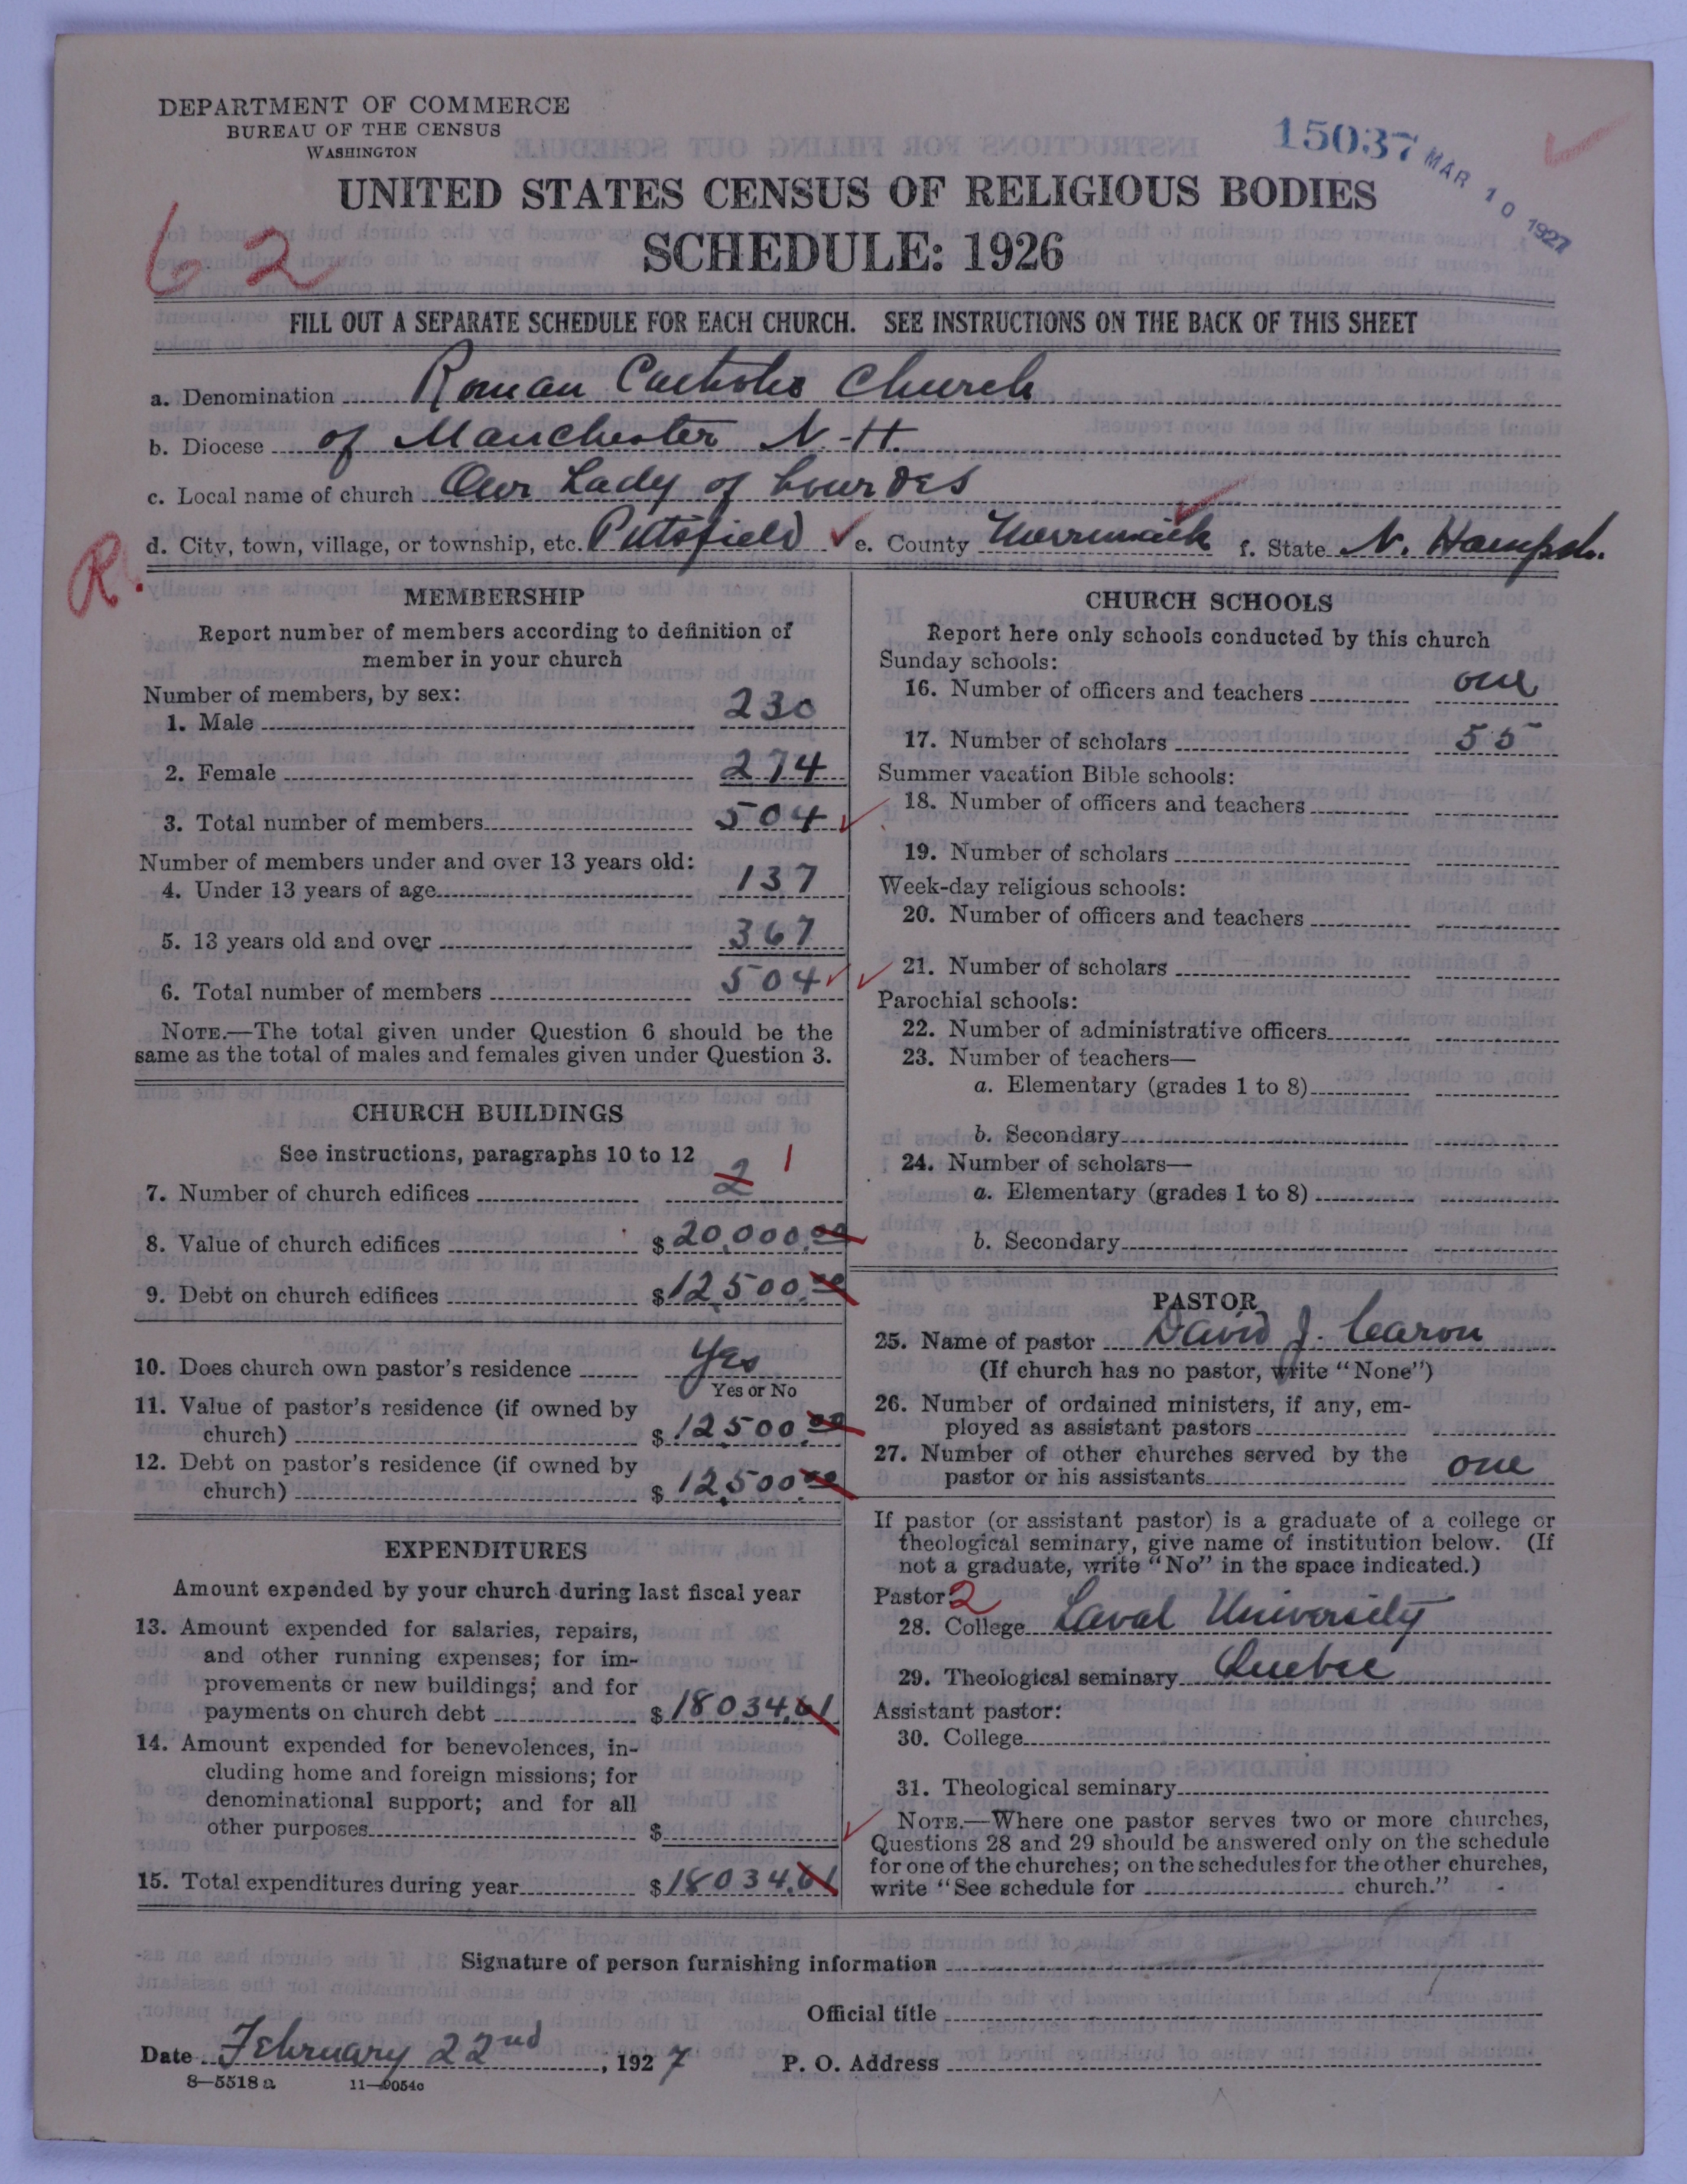 DEPARTMENT OF COMMERCE
BUREAU OF THE CENSUS
WASHINGTON
15037 MAR 10 1927
UNITED STATES CENSUS OF RELIGIOUS BODIES
62
SCHEDULE: 1926
FILL OUT A SEPARATE SCHEDULE FOR EACH CHURCH. SEE INSTRUCTIONS ON THE BACK OF THIS SHEET
a. Denomination Roman Catholic Church
b. Diocese of Manchester N-H.
c. Local name of church Our Lady of Lourdes
d. City, town, village, or township, etc. Pittsfield e. County Merrimack f. State N. Hampsh.
R.
MEMBERSHIP
Report number of members according to definition of
member in your church
Number of members, by sex:
1. Male 230
2. Female 274
3. Total number of members 504
Number of members under and over 13 years old:
4. Under 13 years of age 137
5. 13 years old and over 367
6. Total number of members 504
NOTE.—The total given under Question 6 should be the
same as the total of males and females given under Question 3.
CHURCH BUILDINGS
See instructions, paragraphs 10 to 12
7. Number of church edifices 2 1
8. Value of church edifices $20,000.00
9. Debt on church edifices $12,500.00
10. Does church own pastor's residence Yes
Yes or No
11. Value of pastor's residence (if owned by
church) $12,500.00
12. Debt on pastor's residence (if owned by
church) $12,500.00
EXPENDITURES
Amount expended by your church during last fiscal year
13. Amount expended for salaries, repairs,
and other running expenses; for im-
provements or new buildings; and for
payments on church debt $18034.61
14. Amount expended for benevolences, in-
cluding home and foreign missions; for
denominational support; and for all
other purposes $
15. Total expenditures during year $18034.61
CHURCH SCHOOLS
Report here only schools conducted by this church
Sunday schools:
16. Number of officers and teachers one
17. Number of scholars 55
Summer vacation Bible schools:
18. Number of officers and teachers
19. Number of scholars
Week-day religious schools:
20. Number of officers and teachers
21. Number of scholars
Parochial schools:
22. Number of administrative officers
23. Number of teachers—
a. Elementary (grades 1 to 8)
b. Secondary
24. Number of scholars—
a. Elementary (grades 1 to 8)
b. Secondary
PASTOR
25. Name of pastor David J. Caron
(If church has no pastor, write "None")
26. Number of ordained ministers, if any, em-
ployed as assistant pastors
27. Number of other churches served by the
pastor or his assistants one
If pastor (or assistant pastor) is a graduate of a college or
theological seminary, give name of institution below. (If
not a graduate, write "No" in the space indicated.)
Pastor: 2
28. College Laval University
29. Theological seminary Quebec
Assistant pastor:
30. College
31. Theological seminary
NOTE.—Where one pastor serves two or more churches,
Questions 28 and 29 should be answered only on the schedule
for one of the churches; on the schedules for the other churches,
write "See schedule for church."
Signature of person furnishing information
Official title
Date February 22nd, 1927 P. O. Address
8—5518 a 11—9054c